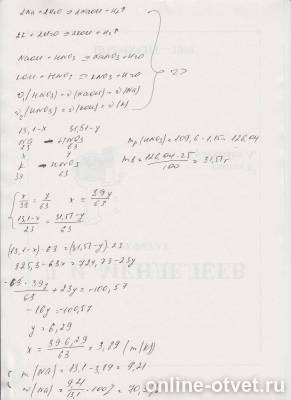 2Na + 2H2O = 2NaOH + H2↑
2K + 2H2O = 2KOH + H2↑
NaOH + HNO3 = NaNO3 + H2O
KOH + HNO3 = KNO3 + H2O
ν1(HNO3) = ν(NaOH) = ν(Na)
ν2(HNO3) = ν(KOH) = ν(K)
=>
13,1-x 31,51-y
Na → HNO3
23 63
mр(HNO3) = 109,6 · 1,15 = 126,04
x y
K → HNO3
39 63
mв = 126,04 · 25 / 100 = 31,51г
x/39 = y/63 x = 39y/63
13,1-x/23 = 31,51-y/63
(13,1-x) · 63 = (31,51-y) · 23
825,3-63x = 724,73-23y
-63 · 39y/63 + 23y = -100,57
-16y = -100,57
y = 6,29
x = 39 · 6,29/63 = 3,89 (m(K))
m(Na) = 13,1 - 3,89 = 9,21
w(Na) = 9,21/13,1 · 100% = 70,3%
online-otvet.ru